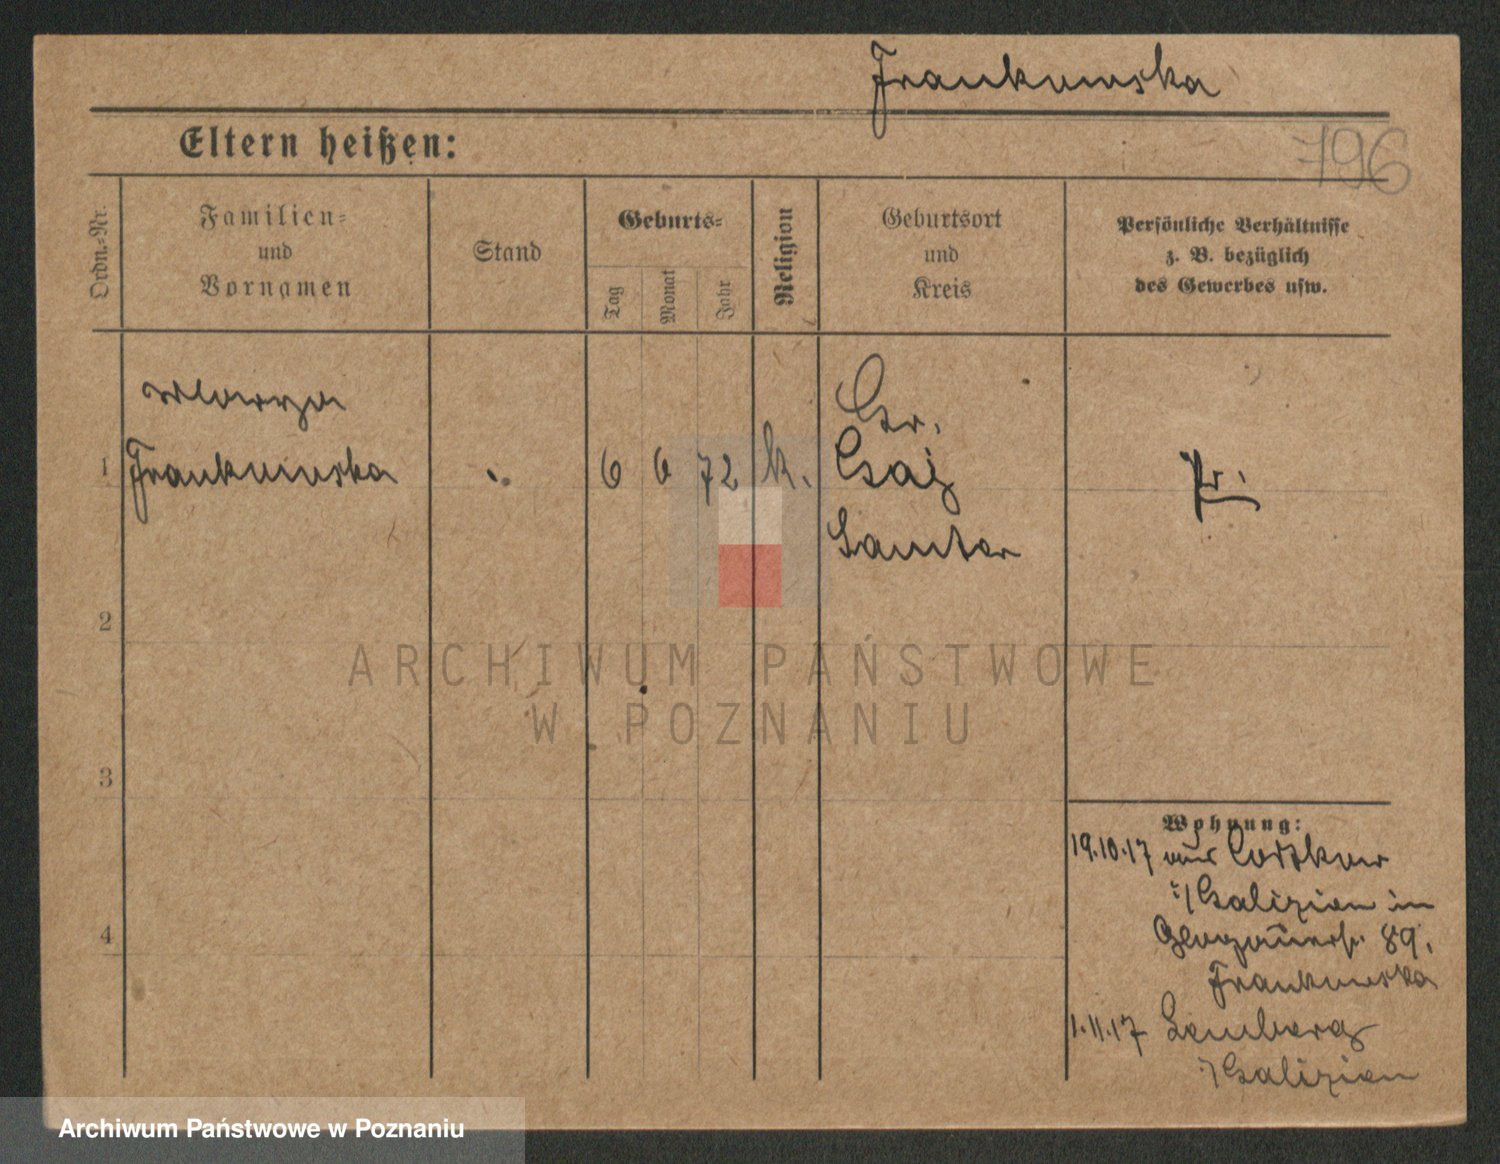 Frankowska
Eltern heißen:
796
Ordn.=Nr.
Familien=
und
Vornamen
Stand
Geburts=
Tag
Monat
Jahr
Religion
Geburtsort
und
Kreis
Persönliche Verhältnisse
z. B. bezüglich
des Gewerbes usw.
Marya
1 Frankowska 6 6 72 k.
Gr.
Gaj
Samter
Pr.
2
3
4
Wohnung:
19.10.17 aus
i/Galizien in
Glogauerstr. 89.
Frankowska
1.11.17 Lemberg
i/Galizien
ARCHIWUM PAŃSTWOWE
W POZNANIU
Archiwum Państwowe w Poznaniu